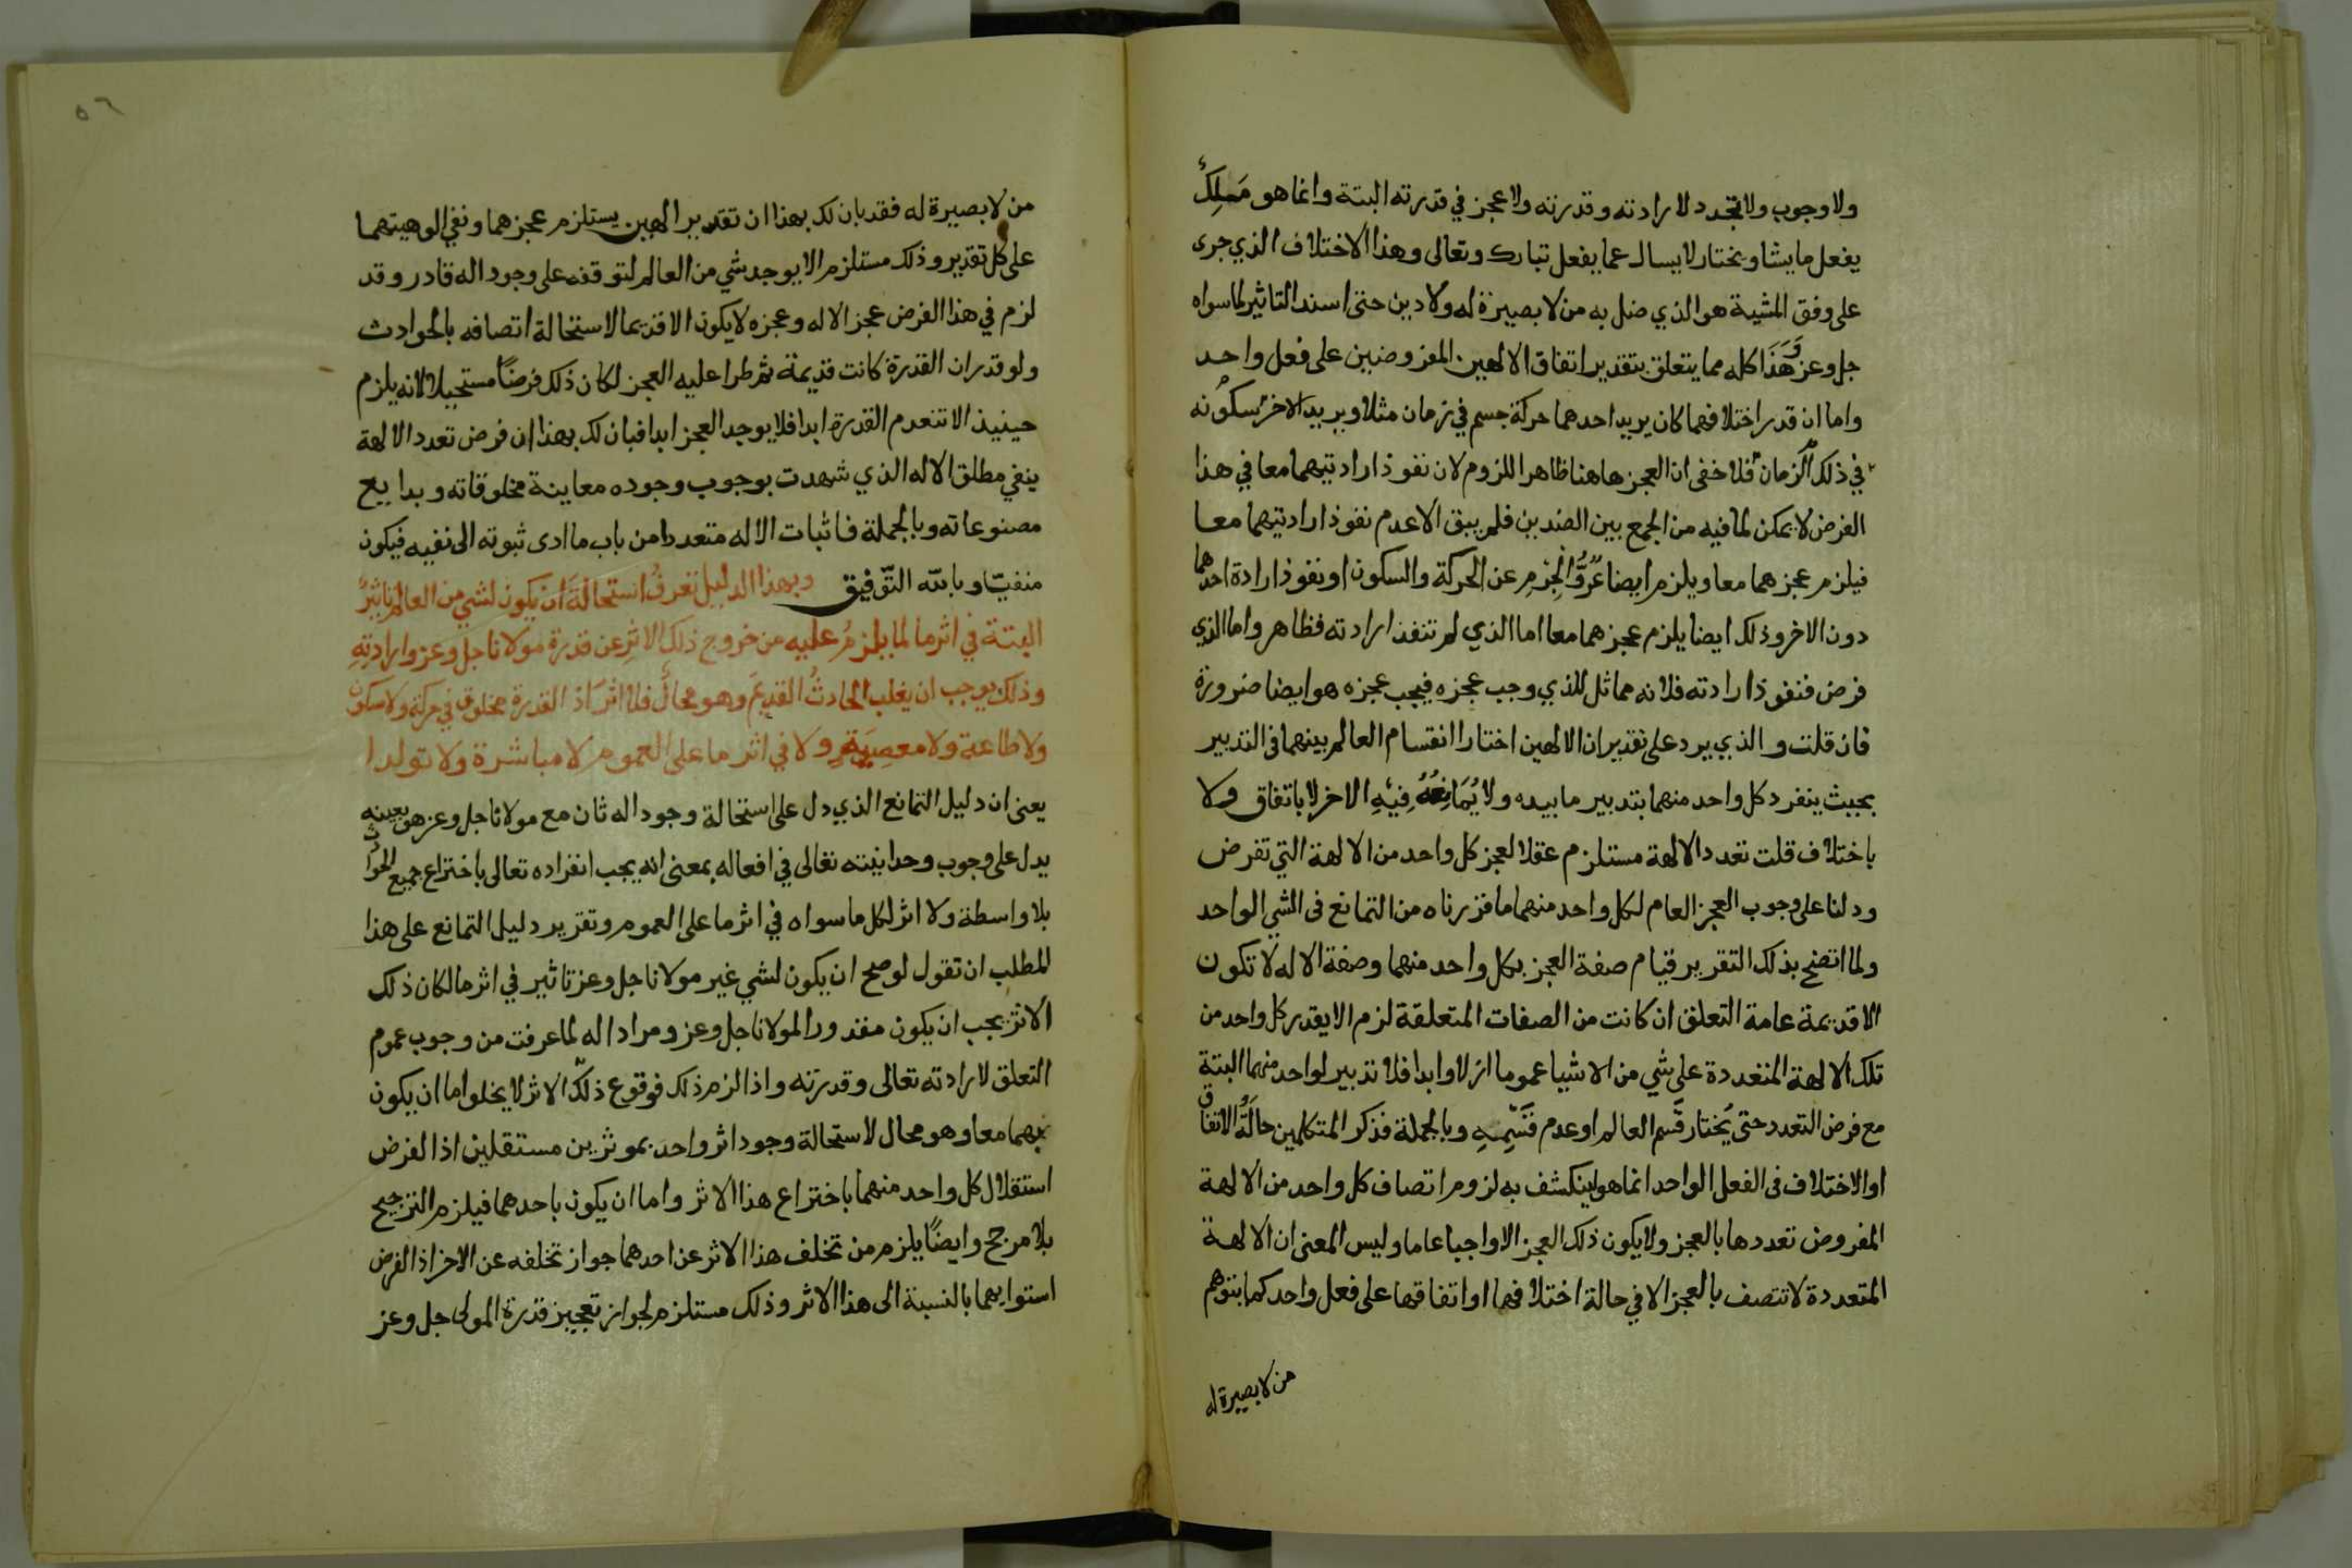 ولا وجوب ولا تجدد لارادته وقدرته ولا عجز في قدرته البتة وانما هو مَلِكٌ
يفعل ما يشا ويختار لا يسال عما يفعل تبارك وتعالى وهذا الاختلاف الذي جرى
على وفق المشية هو الذي ضل به من لا بصيرة له ولا دين حتى اسند التاثير لما سواه
جل وعز وَهَذَا كله مما يتعلق بتقدير اتفاق الالهين المفروضين على فعل واحد
واما ان قدر اختلافهما كان يريد احدهما حركة جسم في زمان مثلا ويريد الاخر سكونه
في ذلك الزمان فلا خفى ان العجز هاهنا ظاهر اللزوم لان نفوذ ارادتيهما معا في هذا
الفرض لا يمكن لما فيه من الجمع بين الضدين فلم يبق الا عدم نفوذ ارادتيهما معا
فيلزم عجزهما معا ويلزم ايضا عُرُوُّ الْجِرْمِ عن الحركة والسكون او نفوذ ارادة احدهما
دون الاخر وذلك ايضا يلزم عجزهما معا اما الذي لم تنفذ ارادته فظاهر واما الذي
فرض فنفوذ ارادته فلانه مماثل للذي وجب عجزه فيجب عجزه هو ايضا ضرورة
فان قلت والذي يرد على تقدير ان الالهين اختارا انقسام العالم بينهما فى التدبير
بحيث ينفرد كل واحد منهما بتدبير ما بيده ولا يُمَانِعُهُ فِيْهِ الاخر لا باتفاق ولا
باختلاف قلت تعدد الالهة مستلزم عقلا لعجز كل واحد من الالهة التي تفرض
ودلنا على وجوب العجز العام لكل واحد منهما ما قررناه من التمانع فى الشي الواحد
ولما اتضح بذلك التقرير قيام صفة العجز بكل واحد منهما وصفة الاله لا تكون
الا قديمة عامة التعلق ان كانت من الصفات المتعلقة لزم الا يقدر كل واحد من
تلك الالهة المتعددة على شي من الاشيا عموما ازلا وابدا فلا تدبير لواحد منهما البتة
مع فرض التعدد حتى يُختار قَسم العالم او عدم قَسْمِهِ وبالجملة فذكر المتكلمين حالَةُ الاتفاق
او الاختلاف فى الفعل الواحد انما هو لينكشف به لزوم اتصاف كل واحد من الالهة
المفروض تعددها بالعجز ولا يكون ذلك العجز الا واجبا عاما وليس المعنى ان الالهة
المتعددة لا تتصف بالعجز الا في حالة اختلافهما او اتفاقهما على فعل واحد كما يتوهم
من لا بصيرة له
٥٦
من لا بصيرة له فقد بان لك بهذا ان تقدير الهين يستلزم عجزهما ونفي الوهيتهما
على كل تقدير وذلك مستلزم الا يوجد شي من العالم لتوقفه على وجود اله قادر وقد
لزم في هذا الفرض عجز الاله وعجزه لا يكون الا قديما لاستحالة اتصافه بالحوادث
ولو قدر ان القدرة كانت قديمة ثم طرا عليه العجز لكان ذلك فرضًا مستحيلا لانه يلزم
حينيذ الا تنعدم القدرة ابدا فلا يوجد العجز ابدا فبان لك بهذا ان فرض تعدد الالهة
ينفي مطلق الاله الذي شهدت بوجوب وجوده معاينة مخلوقاته وبدايع
مصنوعاته وبالجملة فاثبات الاله متعددا من باب ما ادى ثبوته الى نفيه فيكون
منفيّا وبالله التّوفيق وبهذا الدليل تعرفُ استحالَةَ ان يكون لشي من العالم تاثيرٌ
البتة في اثر ما لما يلزمُ عليه من خروج ذلك الاثرِ عن قدرة مولانا جل وعز وارادتِهِ
وذلك يوجب ان يغلب الحادثُ القديمَ وهو محالٌ فلا اثر اذا لقدرة مخلوق في حركة ولا سكون
ولا طاعة ولا معصِيَةٍ ولا في اثر ما على العموم لا مباشرة ولا تولدا
يعنى ان دليل التمانع الذي دل على استحالة وجود اله ثان مع مولانا جل وعز هو بعينه
يدل على وجوب وحدانيته تعالى في افعاله بمعنى انه يجب انفراده تعالى باختراع جميع الحوادث
بلا واسطة ولا اثر لكل ما سواه في اثر ما على العموم وتقرير دليل التمانع على هذا
المطلب ان تقول لو صح ان يكون لشي غير مولانا جل وعز تاثير في اثر ما لكان ذلك
الاثر يجب ان يكون مقدورا لمولانا جل وعز ومرادا له لما عرفت من وجوب عموم
التعلق لارادته تعالى وقدرته واذا لزم ذلك فوقوع ذلك الاثر لا يخلوا اما ان يكون
بهما معا وهو محال لاستحالة وجود اثر واحد بموثرين مستقلين اذ الفرض
استقلال كل واحد منهما باختراع هذا الاثر واما ان يكون باحدهما فيلزم الترجيح
بلا مرجح وايضًا يلزم من تخلف هذا الاثر عن احدهما جواز تخلفه عن الاخر اذ الفرض
استوايهما بالنسبة الى هذا الاثر وذلك مستلزم لجواز تعجيز قدرة المولى جل وعز